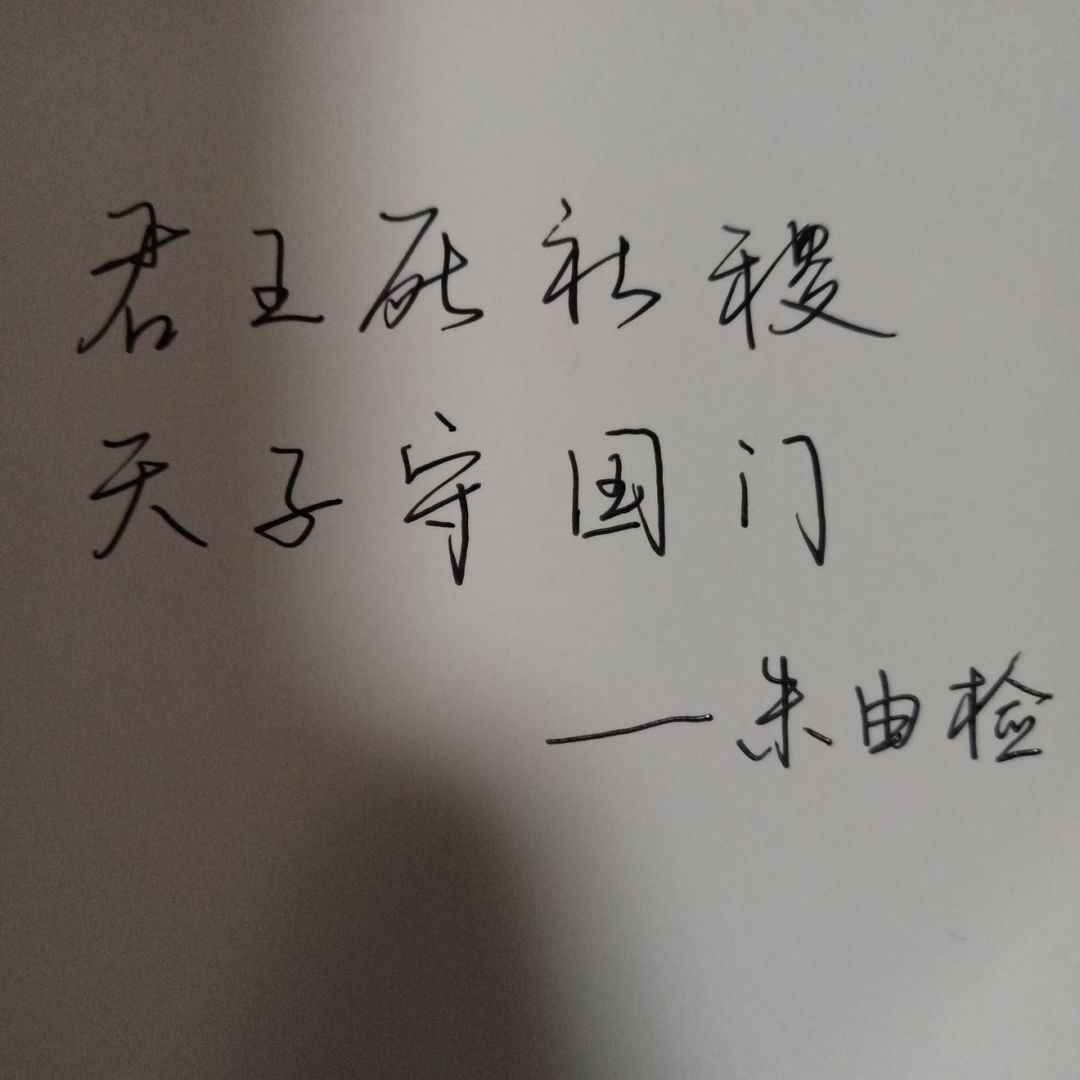 君王死社稷
天子守国门
——朱由检